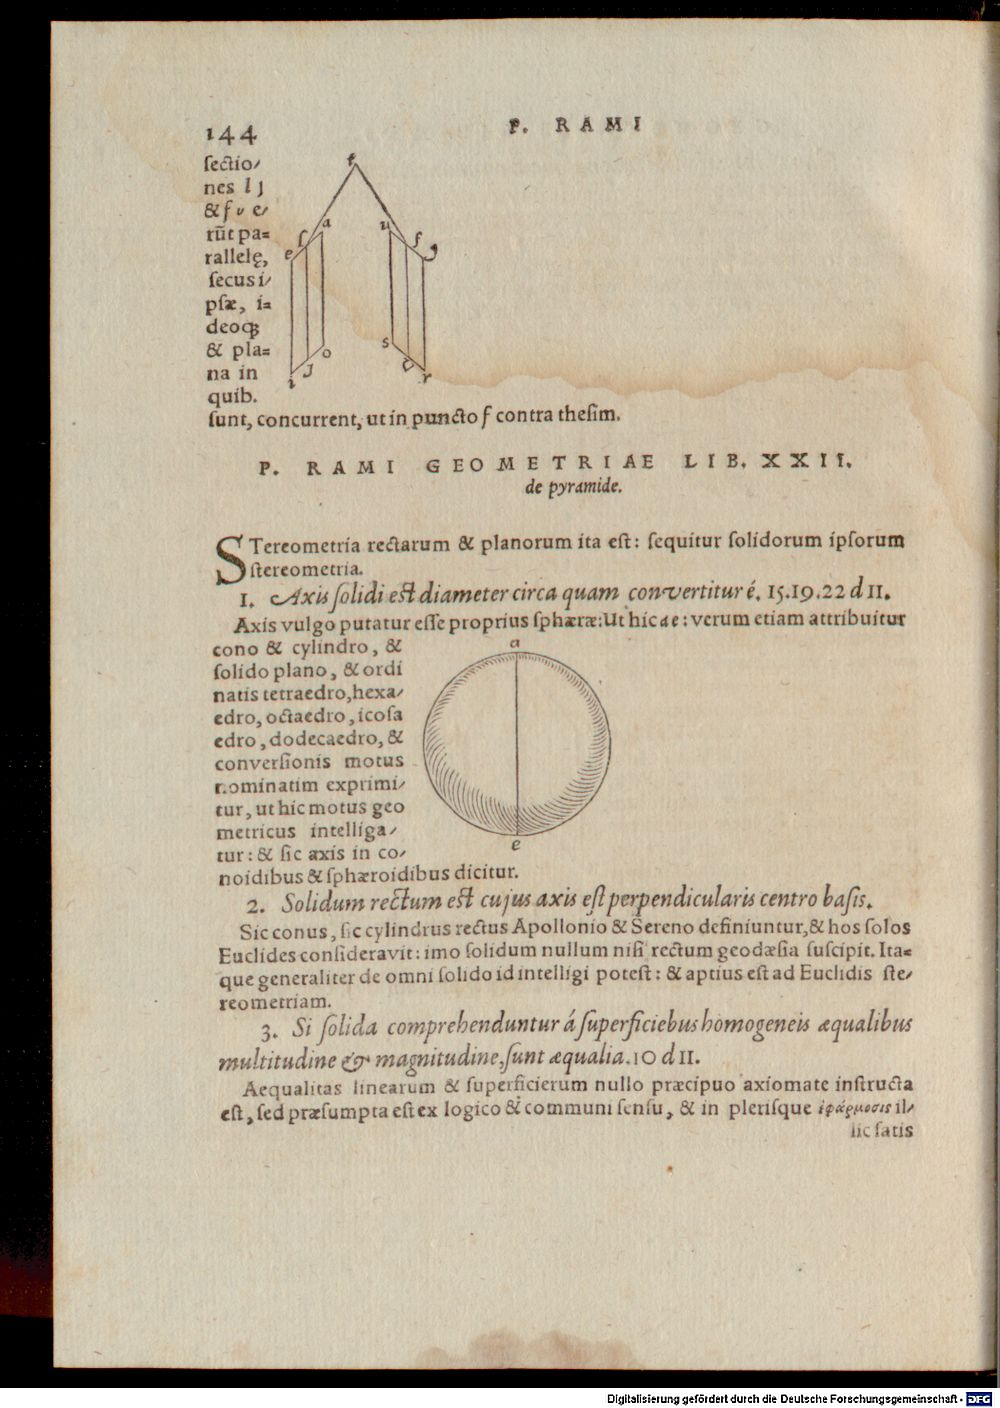 144
P. RAMI
sectio/
nes l j
& f v e/
rūt pa=
rallelę,
secus i/
psæ, i=
deoqꝫ
& pla=
na in
quib.
sunt, concurrent, ut in puncto f contra thesim.
t
a
u
e
ſ
ſ
y
s
o
i
j
v
r
P. RAMI GEOMETRIAE LIB. XXII.
de pyramide.
STereometria rectarum & planorum ita est: sequitur solidorum ipsorum
stereometria.
1. Axis solidi est diameter circa quam convertitur é. 15.19.22 d 11.
Axis vulgo putatur esse proprius sphæræ: Ut hic ae: verum etiam attribuitur
cono & cylindro, &
solido plano, & ordi
natis tetraedro, hexa/
edro, octaedro, icosa
edro, dodecaedro, &
conversionis motus
nominatim exprimi/
tur, ut hic motus geo
metricus intelliga/
tur: & sic axis in co/
noidibus & sphæroidibus dicitur.
a
e
2. Solidum rectum est cujus axis est perpendicularis centro basis.
Sic conus, sic cylindrus rectus Apollonio & Sereno definiuntur, & hos solos
Euclides consideravit: imo solidum nullum nisi rectum geodæsia suscipit. Ita=
que generaliter de omni solido id intelligi potest: & aptius est ad Euclidis ste/
reometriam.
3. Si solida comprehenduntur á superficiebus homogeneis æqualibus
multitudine & magnitudine, sunt æqualia. 10 d 11.
Aequalitas linearum & superficierum nullo præcipuo axiomate instructa
est, sed præsumpta est ex logico & communi sensu, & in plerisque ἐφάρμοσις il/
lic satis
Digitalisierung gefördert durch die Deutsche Forschungsgemeinschaft - DFG